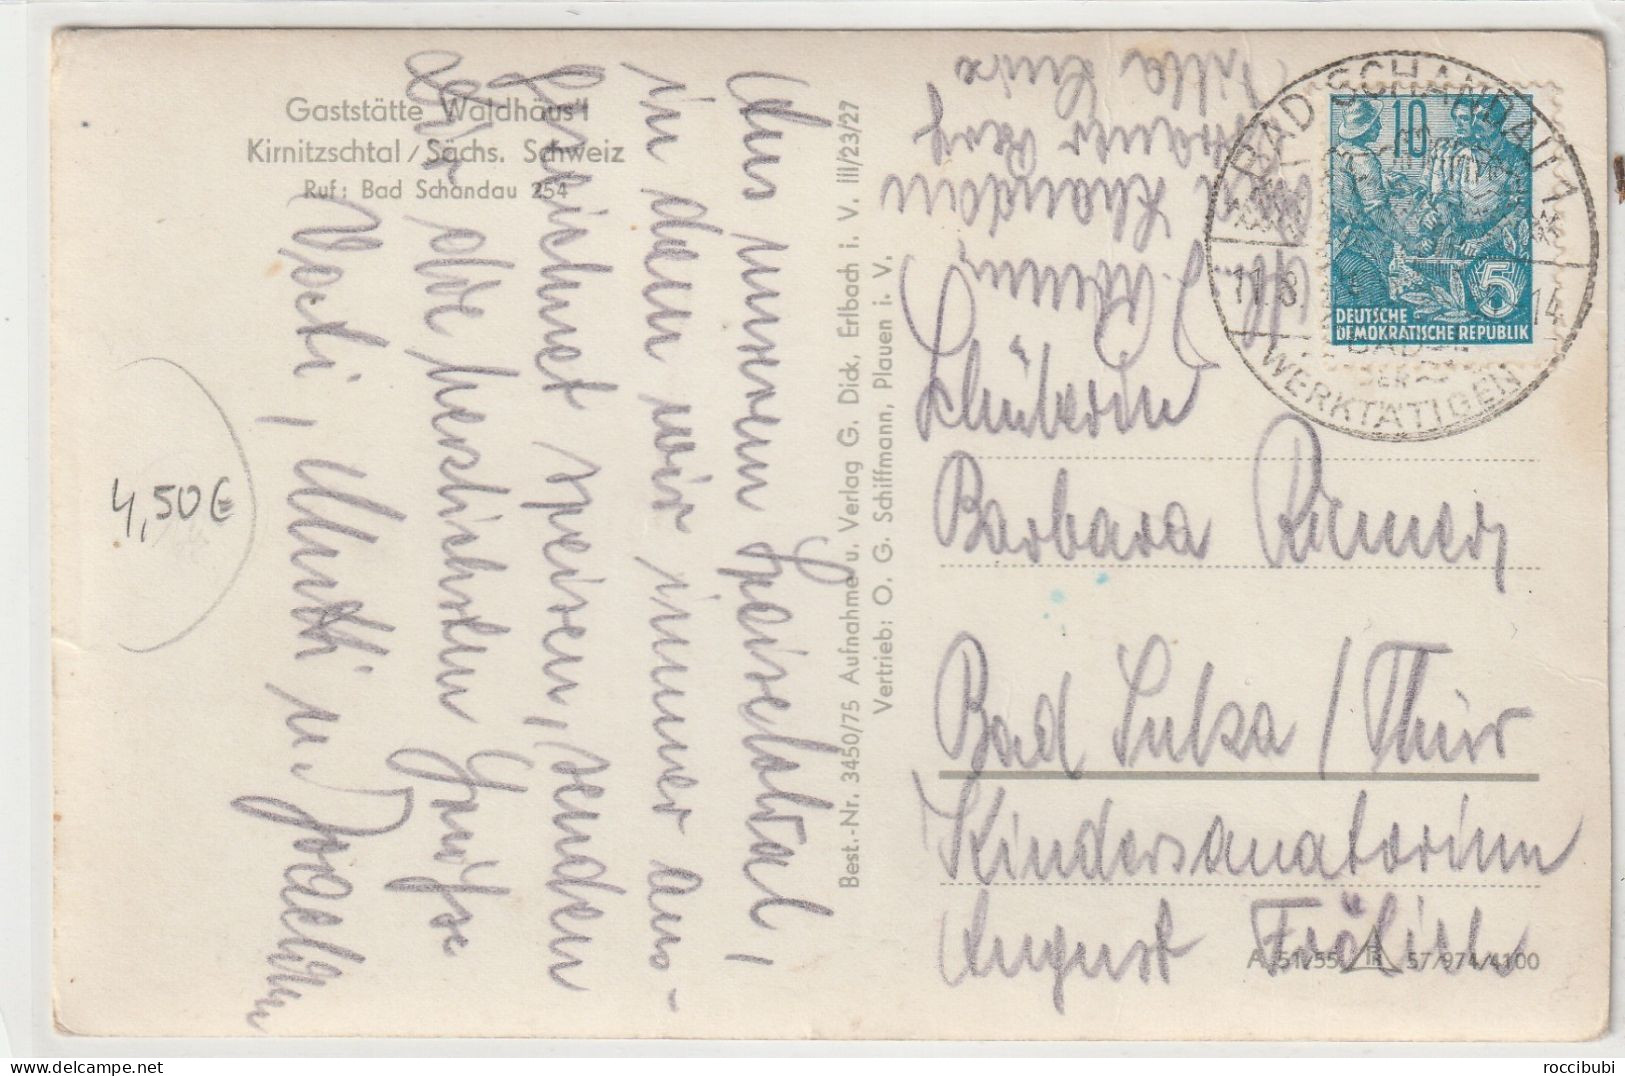 Gaststätte Waldhäus'l
Kirnitzschtal / Sächs. Schweiz
Ruf: Bad Schandau 254
4,50€
Aus unserem Speiselokal,
in dem wir immer aus-
gezeichnet speisen, senden
wir alle herzlichsten Grüße
Vati, Mutti u. Joachim
Best.-Nr. 3450/75 Aufnahme u. Verlag G. Dick, Erlbach i. V. III/23/27
Vertrieb: O. G. Schiffmann, Plauen i. V.
Villa
Schandau
BAD SCHANDAU 1
11.8. 14
BÄDER
WERKTÄTIGEN
10
5
DEUTSCHE
DEMOKRATISCHE REPUBLIK
Schülerin
Barbara
Bad Sulza / Thür
Kindersanatorium
August Frölich
A 51/55 57/974/4100
roccibubi